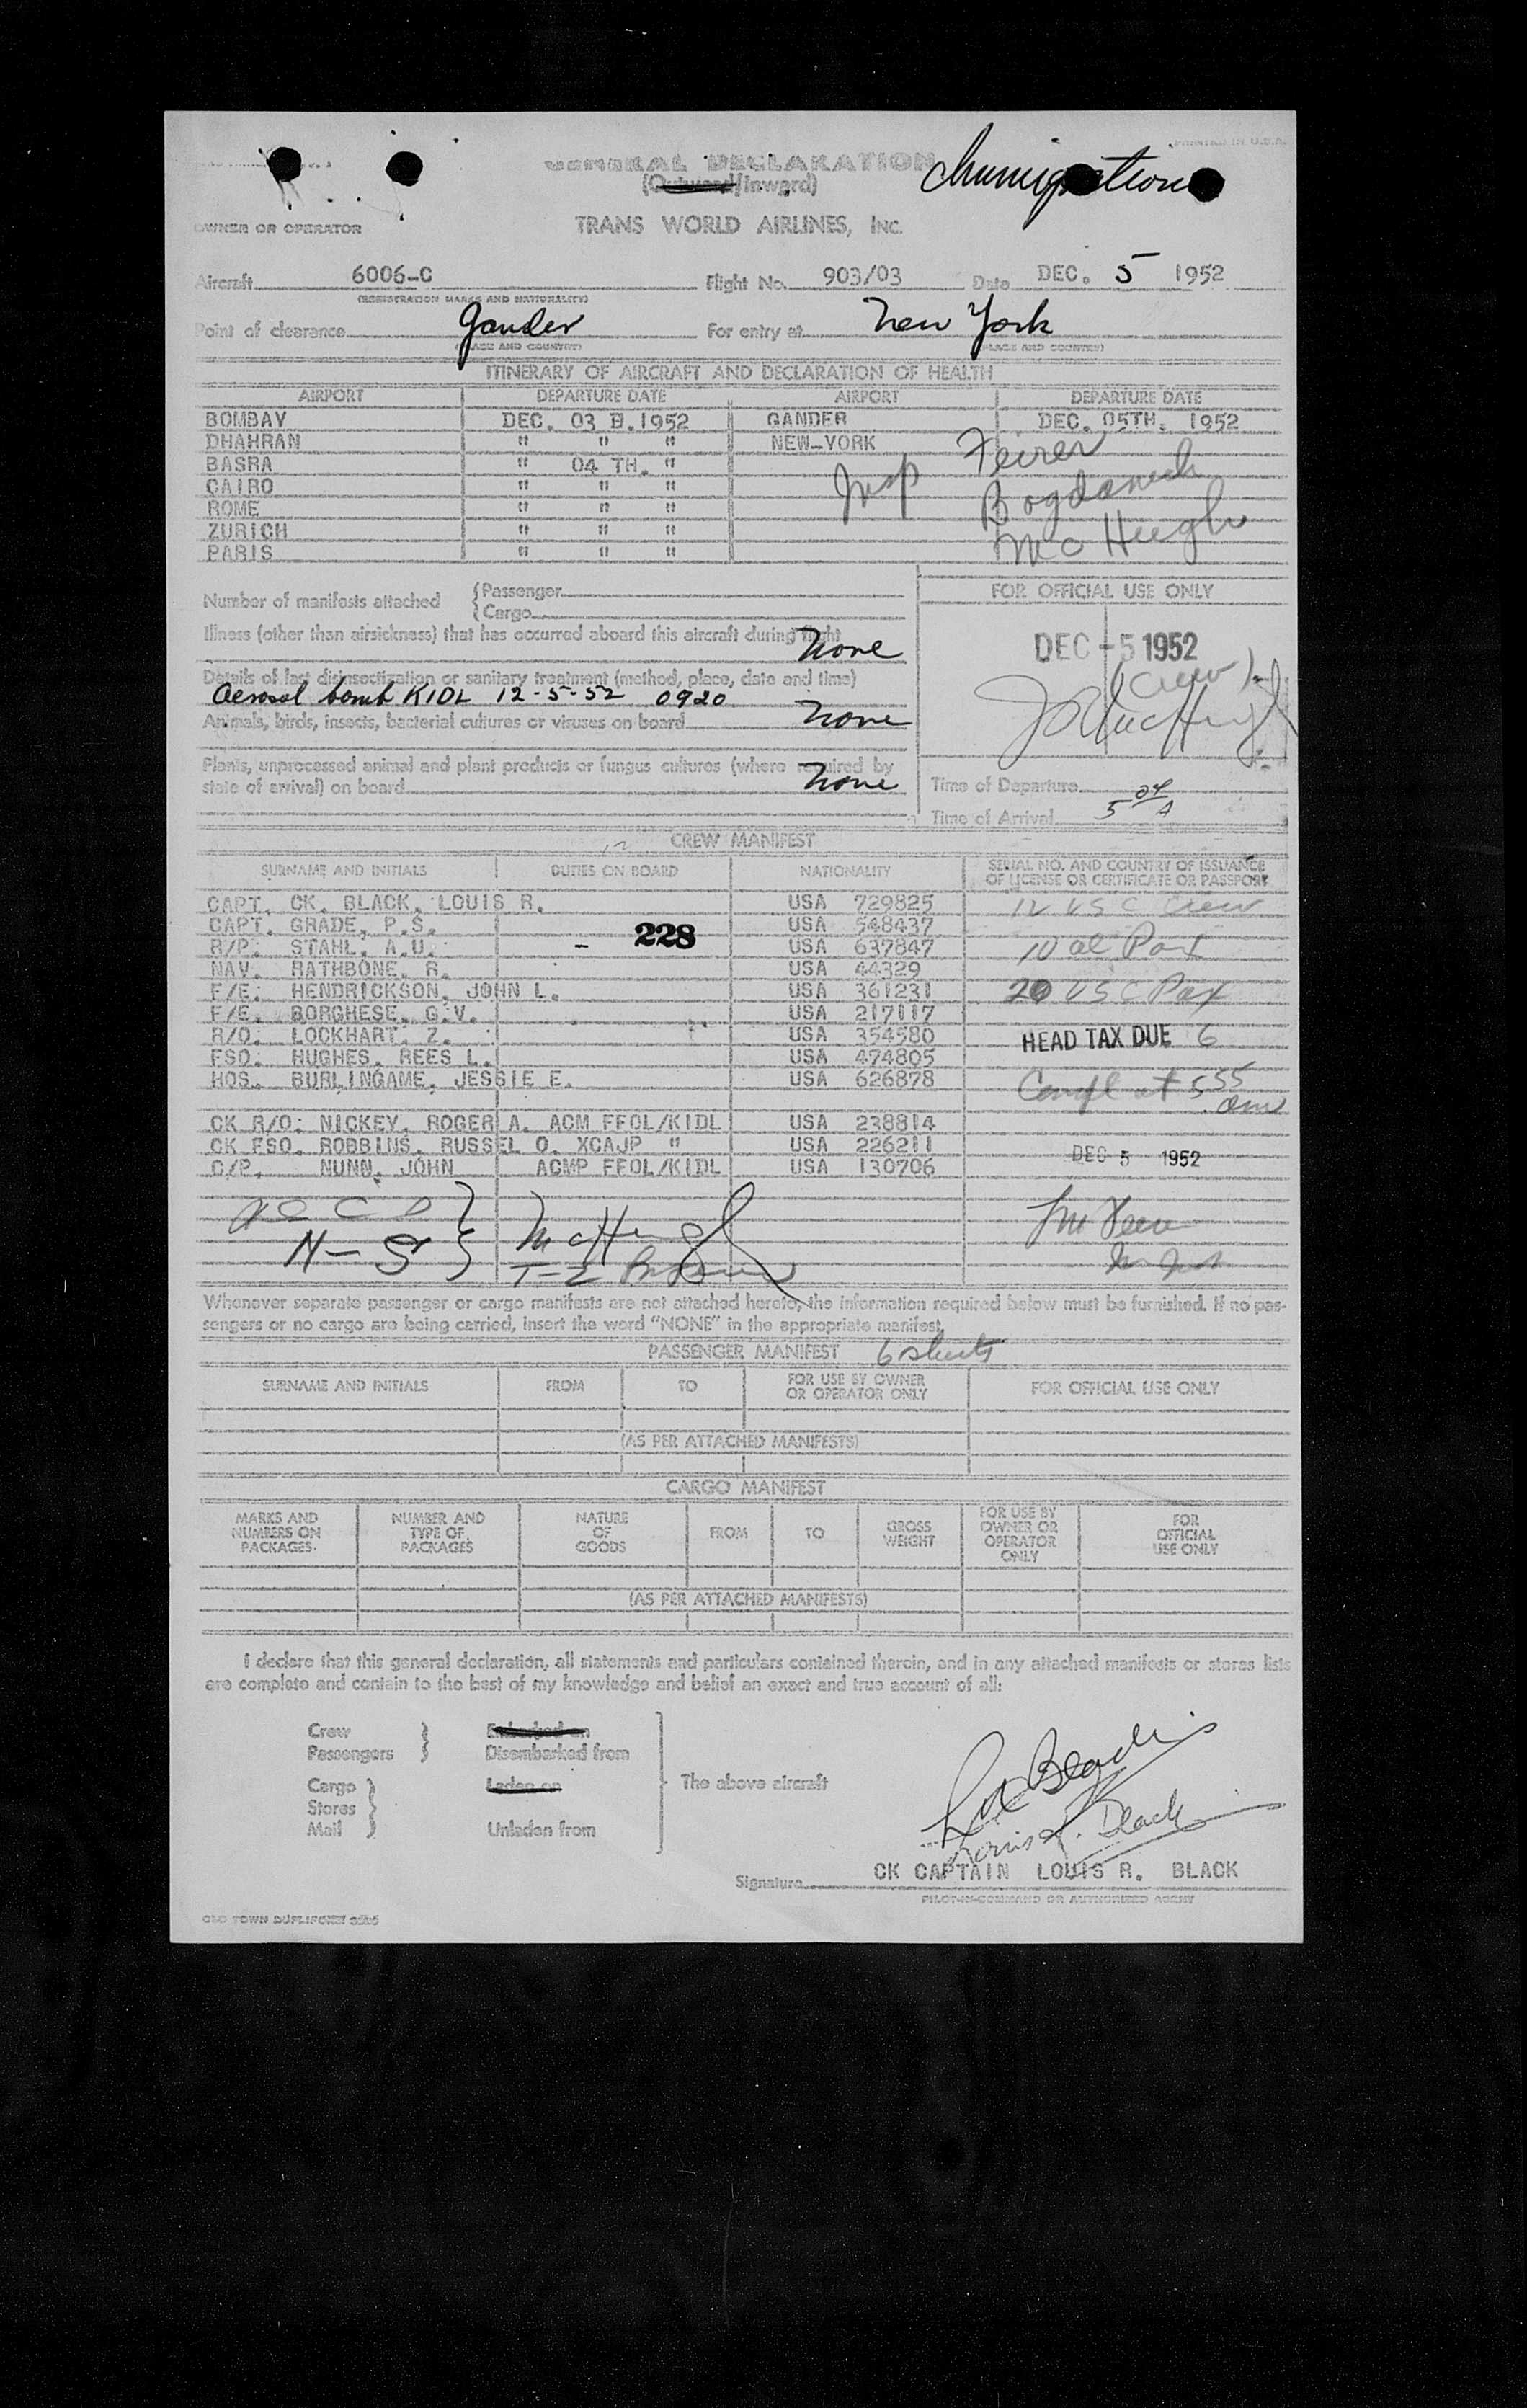 PRINTED IN U.S.A.
GENERAL DECLARATION
Immigration
(Outward/Inward)
OWNER OR OPERATOR TRANS WORLD AIRLINES, INC.
Aircraft 6006-C Flight No. 903/03 Date DEC. 5 1952
(REGISTRATION MARKS AND NATIONALITY)
Point of clearance Gander For entry at New York
(PLACE AND COUNTRY) (PLACE AND COUNTRY)
ITINERARY OF AIRCRAFT AND DECLARATION OF HEALTH
AIRPORT DEPARTURE DATE AIRPORT DEPARTURE DATE
BOMBAY DEC. 03 1952 GANDER DEC. 05TH. 1952
DHAHRAN " " " NEW-YORK
BASRA " 04 TH. "
CAIRO " " "
ROME " " "
ZURICH " " "
PARIS " " "
Insp Feirer
Bogdanich
McHugh
Number of manifests attached {Passenger
{Cargo
FOR OFFICIAL USE ONLY
Illness (other than airsickness) that has occurred aboard this aircraft during flight
None
DEC - 5 1952
(Crew)
Details of last disinsectization or sanitary treatment (method, place, date and time)
Aerosol bomb KIDL 12-5-52 0920
Animals, birds, insects, bacterial cultures or viruses on board None
Plants, unprocessed animal and plant products or fungus cultures (where required by
state of arrival) on board None
Time of Departure
Time of Arrival 5 24 A
CREW MANIFEST
SURNAME AND INITIALS DUTIES ON BOARD NATIONALITY SERIAL NO. AND COUNTRY OF ISSUANCE
OF LICENSE OR CERTIFICATE OR PASSPORT
CAPT. CK. BLACK, LOUIS R. USA 729825 12 USC Crew
CAPT. GRADE, P.S. USA 548437
R/P. STAHL, A.U. - 228 USA 637847 10 al Pax
NAV. RATHBONE, R. USA 44329
F/E. HENDRICKSON, JOHN L. USA 361231 20 USC Pax
F/E. BORGHESE, G.V. USA 217117
R/O. LOCKHART, Z. USA 354580 HEAD TAX DUE 6
FSO. HUGHES, REES L. USA 474805
HOS. BURLINGAME, JESSIE E. USA 626878 Compl at 5 55 am
CK R/O. NICKEY, ROGER A. ACM FFOL/KIDL USA 238814
CK FSO. ROBBINS, RUSSEL O. XCAJP " USA 226211
C/P. NUNN, JOHN ACMP FFOL/KIDL USA 130706 DEC 5 1952
N-S } McHugh
Whenever separate passenger or cargo manifests are not attached hereto, the information required below must be furnished. If no pas-
sengers or no cargo are being carried, insert the word "NONE" in the appropriate manifest.
PASSENGER MANIFEST 6 sheets
SURNAME AND INITIALS FROM TO FOR USE BY OWNER
OR OPERATOR ONLY FOR OFFICIAL USE ONLY
(AS PER ATTACHED MANIFESTS)
CARGO MANIFEST
MARKS AND
NUMBERS ON
PACKAGES NUMBER AND
TYPE OF
PACKAGES NATURE
OF
GOODS FROM TO GROSS
WEIGHT FOR USE BY
OWNER OR
OPERATOR
ONLY FOR
OFFICIAL
USE ONLY
(AS PER ATTACHED MANIFESTS)
I declare that this general declaration, all statements and particulars contained therein, and in any attached manifests or stores lists
are complete and contain to the best of my knowledge and belief an exact and true account of all:
Crew } Embarked on
Passengers } Disembarked from
Cargo } Laden on The above aircraft
Stores }
Mail } Unladen from
Louis R. Black
Signature CK CAPTAIN LOUIS R. BLACK
PILOT-IN-COMMAND OR AUTHORIZED AGENT